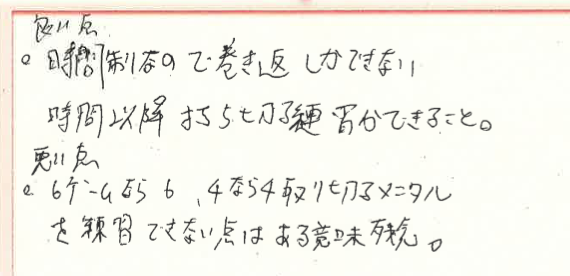 良い点
• 時間制なので巻き返しができない
時間以降持ち切る練習ができること。
悪い点
• 6ゲームなら6、4なら4取り切るメンタル
を練習できない点はある意味残念。